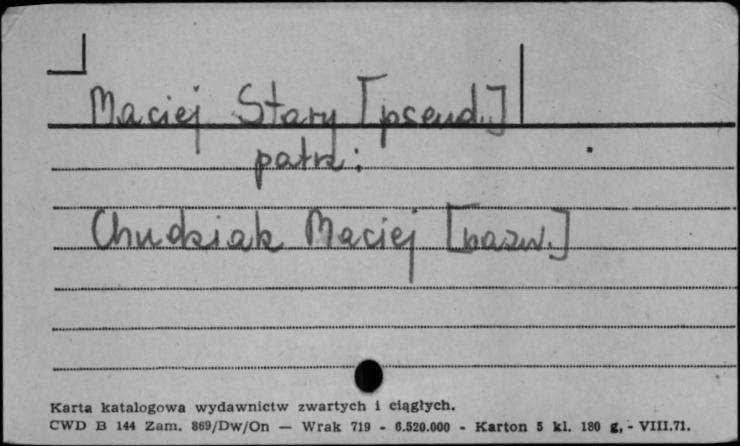 Maciej Stary [pseud.]
patrz:
Chudziak Maciej [nazw.]
Karta katalogowa wydawnictw zwartych i ciągłych.
CWD B 144 Zam. 869/Dw/On — Wrak 719 - 6.520.000 - Karton 5 kl. 180 g, - VIII.71.